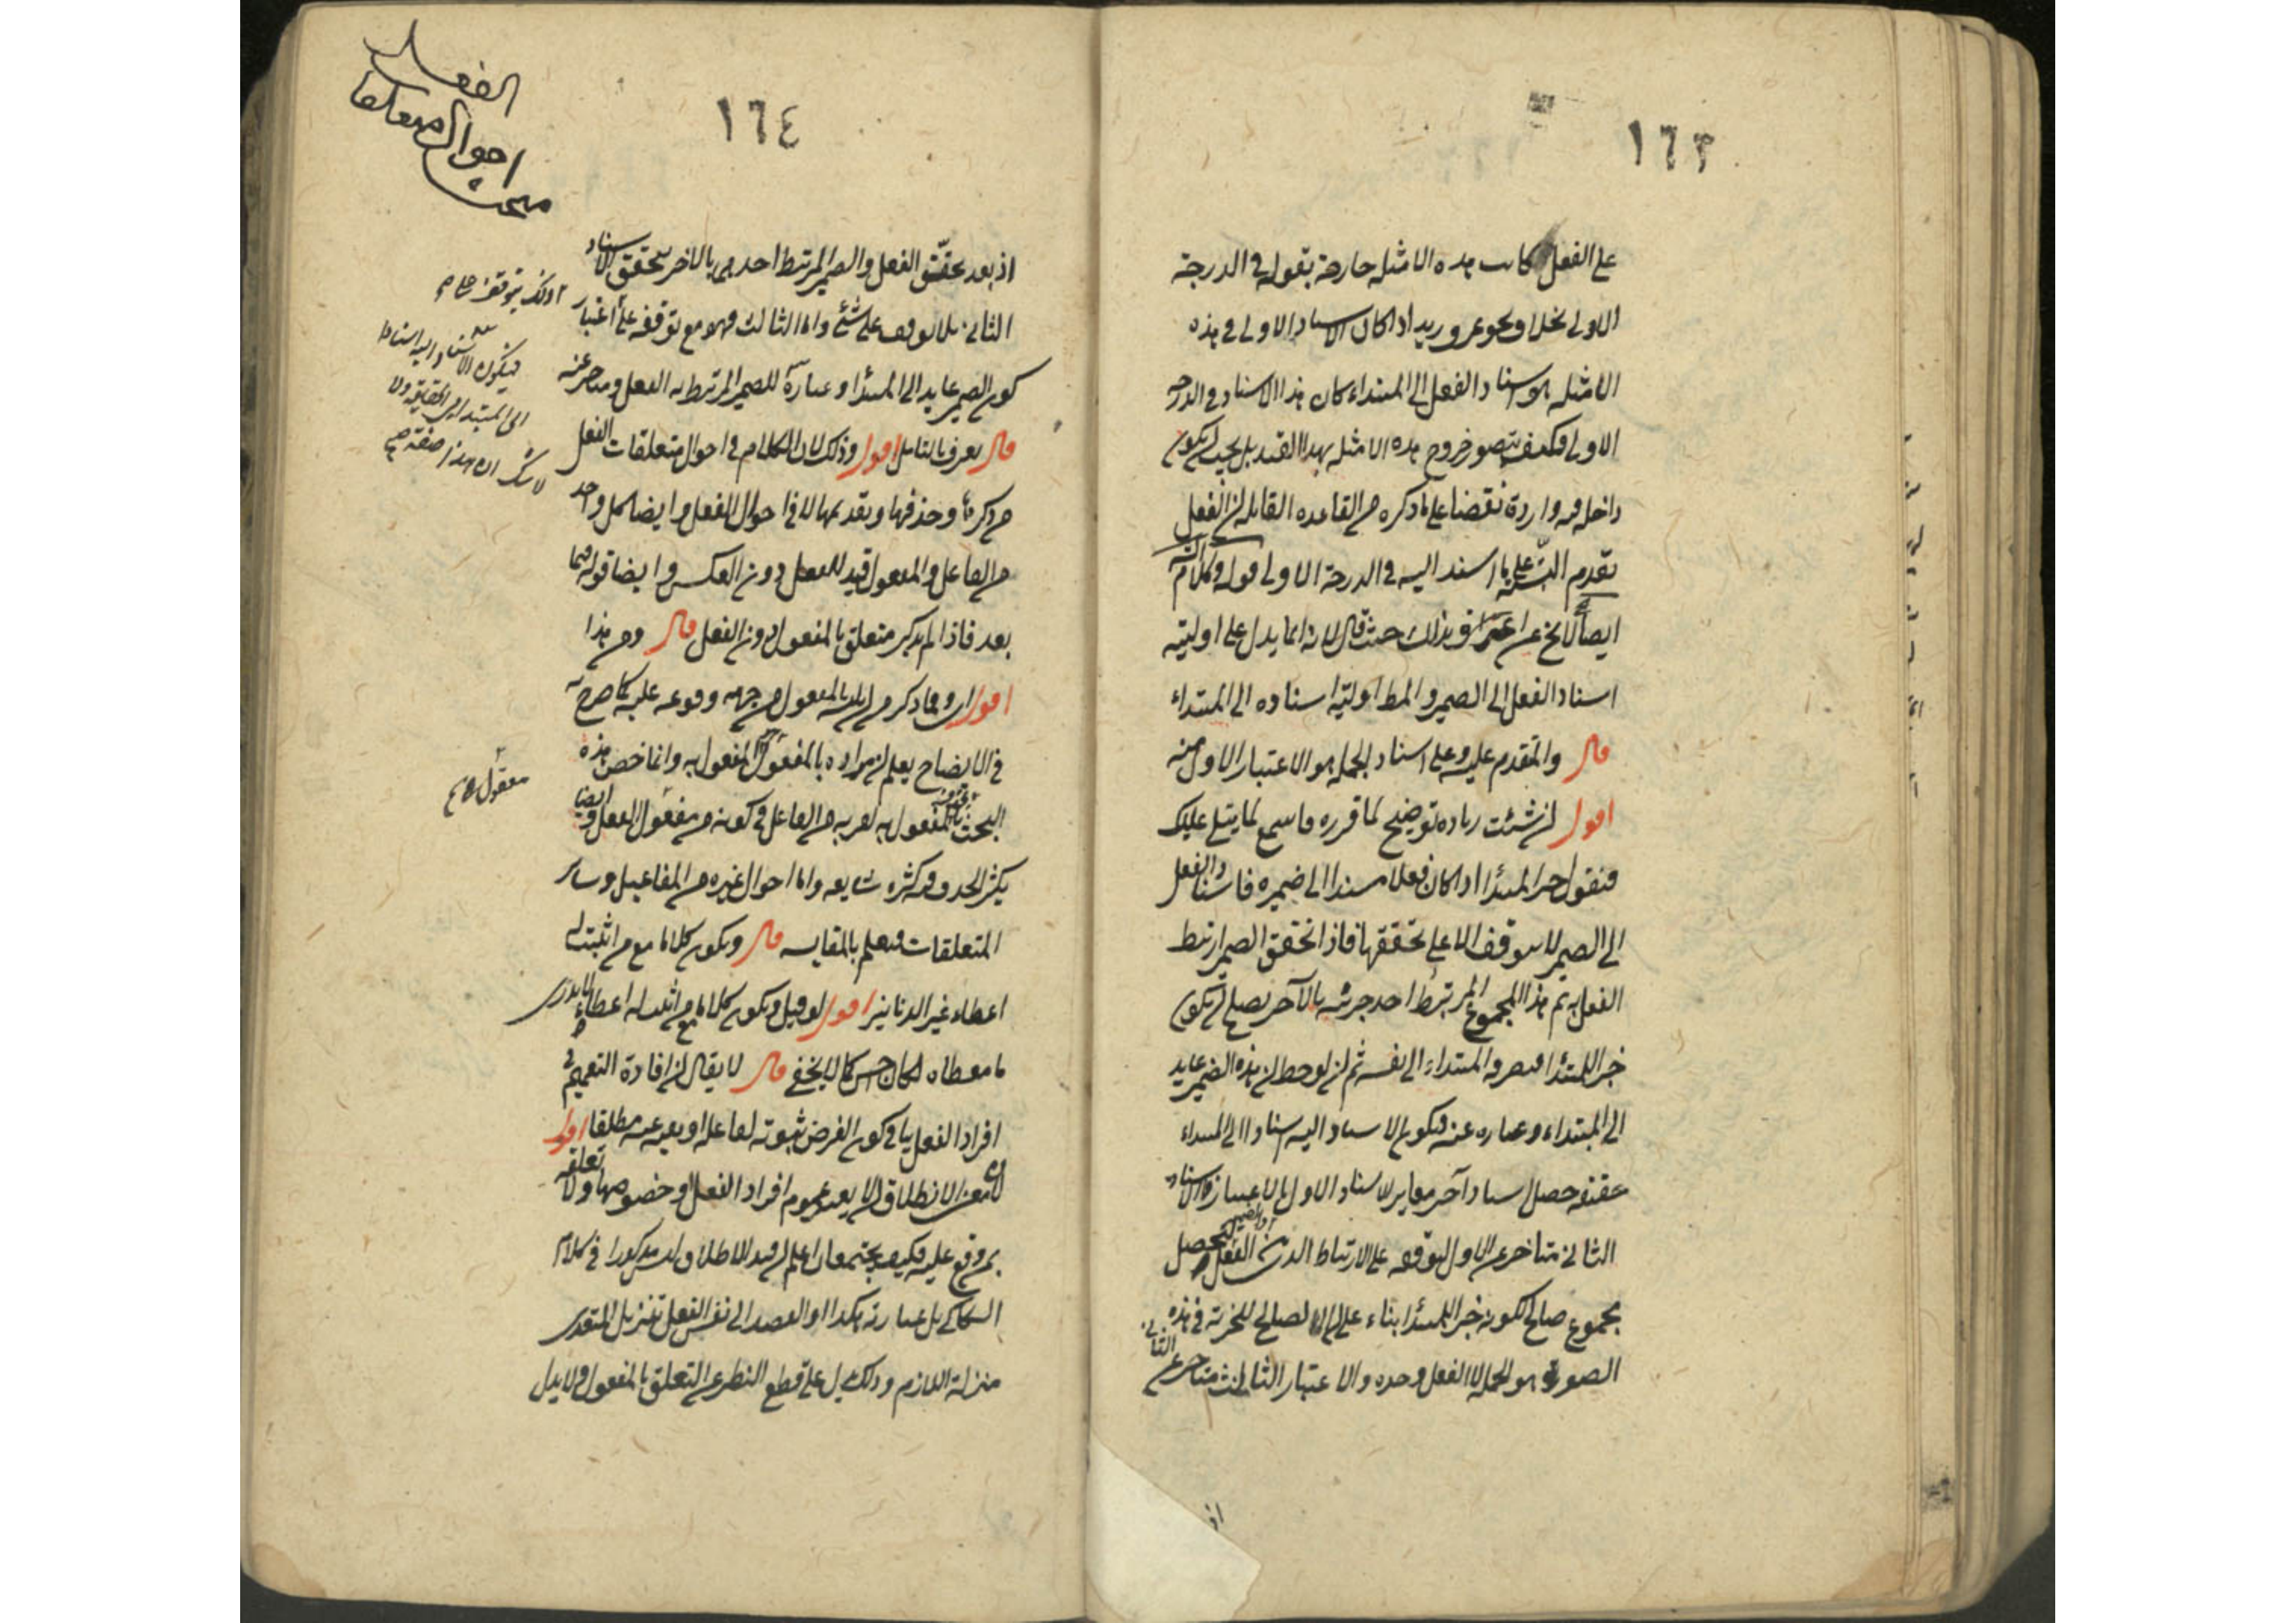 ١٦٣
على الفعل كانت هذه الامثله خارجة بقوله في الدرجة
الاولى نخلا ونحو عمرو وزيد اذا كان الاسناد الاولى في هذه
الامثله هو اسناد الفعل الى المبتداء كان هذا الاسناد في الدرجه
الاولى فكيف يتصور خروج هذه الامثله بهذا القيد بل يجب ان يكون
داخله فيه واردة نقضا على ما ذكره من القاعده القايله ان الفعل
يتقدم البتة على ما اسند اليه في الدرجة الاولى قوله وكلام
ايضا لا يخ عن اعتراف بذلك حيث قال لانه انما يدل على اولية
اسناد الفعل الى الضمير والمط اولية اسناده الى المبتداء
قال والمتقدم عليه وعلى اسناد الجمله هو الاعتبار الاول منه
اقول ان شئت زياده توضيح لما قرره فاسمع لما يتلى عليك
فنقول خبر المبتدأ اذا كان فعلا مسندا الى ضميره فاسناد الفعل
الى الضمير لا يتوقف الا على تحققها فاذا تحقق الضمير ارتبط
الفعل به ثم هذا المجموع المرتبط احد جزئيه بالآخر يصلح ان يكون
خبرا للمبتدأ فيصرفه المبتداء الى نفسه ثم ان لوحظ ان هذه الضمير عايد
الى المبتداء وعباره عنه فيكون الاسناد اليه اسنادا الى المبتداء
حقيقه حصل اسناد آخر مغاير للاسناد الاول بالاعتبار والاسناد
الثاني متاخر عن الاول لتوقفه على الارتباط الذي بين الفعل والضمير ليحصل
مجموع صالح لكونه خبرا للمبتدأ بناء على ان الصالح للخبرية في هذه
الصورة هو الجمله لا الفعل وحده والاعتبار الثالث متاخر عن الثاني
اذ
١٦٤
مبحث احوال متعلقات الفعل
اذ بعد تحقق الفعل والضمير المرتبط احدهما بالاخر يتحقق الاسناد
الثاني بلا توقف على شئ واما الثالث فهو مع توقفه على اعتبار
كون الضمير عايد الى المبتدأ وعبارة للضمير المرتبط به الفعل ومتاخر عنه
قال يعرف بالتامل اقول وذلك لان الكلام في احوال متعلقات الفعل
من ذكرها وحذفها وتقديمها لا في احوال الفعل وايضا كل واحد
من الفاعل والمفعول قيد للفعل دون العكس وايضا قوله فيما
بعد فاذا لم يذكر متعلق بالمفعول دون الفعل قال ومن هذا
اقول اي وما ذكر من تلبسه بالمفعول من جهة وقوعه عليه كما صرح به
في الايضاح يعلم ان مراده بالمفعول المفعول به وانما خص هذه
البحث بالمفعول به لقربه من الفاعل في كونه من معقول الفعل وايضا
يكثر الحذف فيه كثرة شايعه واما احوال غيره من المفاعيل وساير
المتعلقات فيعلم بالمقايسه قال ويكون كلاما مع من اثبت له
اعطاء غير الدنانير اقول لو قيل ويكون كلاما مع من اثبت له اعطاء لا يدرى
ما معطاه لكان احسن كما لا يخفى قال لا يقال ان افادة التعميم في
افراد الفعل ينافي كون الغرض ثبوته لفاعله او نفيه عنه مطلقا اقول
لان معنى الاطلاق ان لا يعتبر عموم افراد الفعل او خصوصها ولا تعلقه
بمن وقع عليه فكيف يجتمعان اعلم ان قيد الاطلاق ليس مذكورا في كلام
السكاكي بل عبارته هكذا او القصد الى نفس الفعل بتنزيل المتعدى
منزلة اللازم وذلك يدل على قطع النظر عن التعلق بالمفعول ولا يدل
فيكون الاسناد اليه اسنادا
الى المبتدا في الحقيقة ولا
شك ان هذا صفته صح
معقول صح